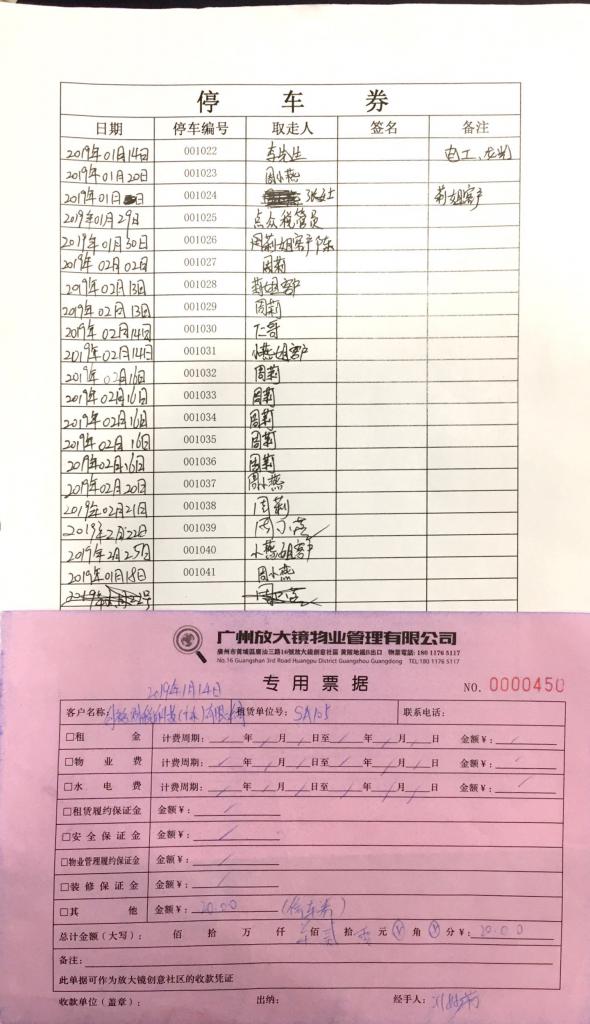 停车券
日期 停车编号 取走人 签名 备注
2019年01月14日 001022 李先生 电工
2019年01月20日 001023 周小燕
2019年01月 001024 莉姐客户
2019年01月29日 001025 点众税管员
2019年01月30日 001026 周莉姐客户陈
2019年02月02日 001027 周莉
2019年02月13日 001028 莉姐客户
2019年02月13日 001029 周莉
2019年02月14日 001030 仁哥
2019年02月14日 001031 小燕姐客户
2019年02月16日 001032 周莉
2019年02月16日 001033 周莉
2019年02月16日 001034 周莉
2019年02月16日 001035 周莉
2019年02月16日 001036 周莉
2019年02月20日 001037 周小燕
2019年02月21日 001038 周莉
2019年2月22日 001039
2019年2月25日 001040 小燕姐客户
2019年01月18日 001041 周小燕
广州放大镜物业管理有限公司
廣州市黄埔區廣汕三路16號放大鏡創意社區 黄陂地鐵B出口 物業電話: 180 1176 5117
No.16 Guangshan 3rd Road Huangpu District Guangzhou Guangdong TEL:180 1176 5117
专用票据 NO. 0000450
2019年1月14日
客户名称: 租赁单位号: SA105 联系电话:
□租金 计费周期: 年 月 日至 年 月 日 金额¥:
□物业费 计费周期: 年 月 日至 年 月 日 金额¥:
□水电费 计费周期: 年 月 日至 年 月 日 金额¥:
□租赁履约保证金 金额¥:
□安全保证金 金额¥:
□物业管理履约保证金 金额¥:
□装修保证金 金额¥:
□其他 金额¥: 20.00 (停车券)
总计金额(大写): 佰 拾 万 仟 佰 贰 拾 零 元 角 分¥: 20.00
备注:
此单据可作为放大镜创意社区的收款凭证
收款单位(盖章): 出纳: 经手人: